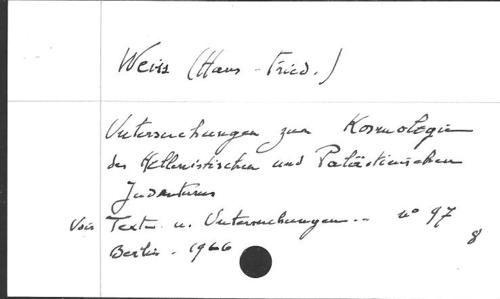 Weiss (Hans-Fried.)
Untersuchungen zur Kosmologie
des Hellenistischen und Palästinischen
Judentums
Voir Texte u. Untersuchungen .. n° 97
Berlin. 1966
8